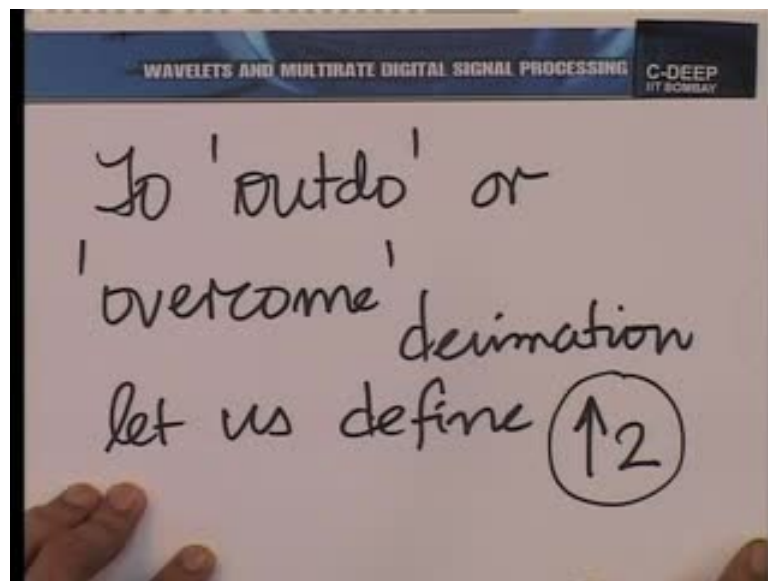 WAVELETS AND MULTIRATE DIGITAL SIGNAL PROCESSING
C-DEEP
IIT BOMBAY
To 'outdo' or
'overcome' decimation
let us define ↑2